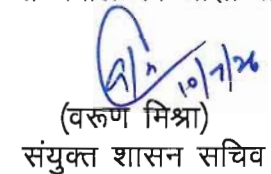 10/7/26
(वरूण मिश्रा)
संयुक्त शासन सचिव